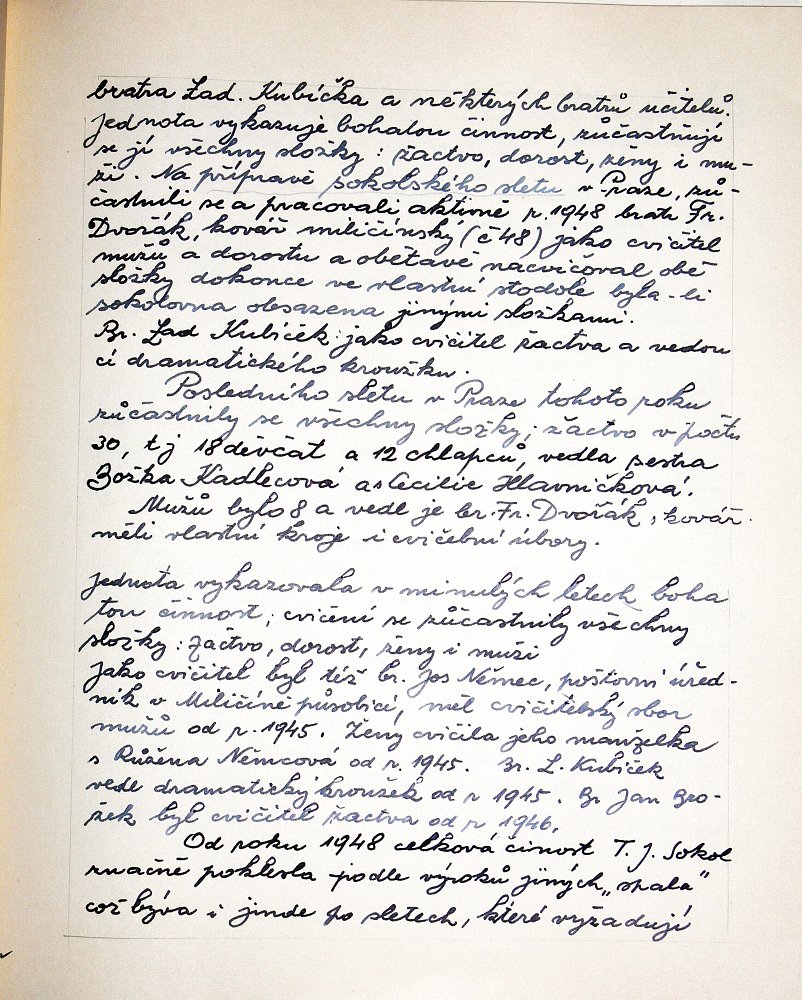 bratra Lad. Kubíčka a některých bratrů učitelů.
Jednota vykazuje bohatou činnost, zůčastňují
se jí všechny složky: žactvo, dorost, ženy i mu-
ži. Na přípravě sokolského sletu v Praze, zů-
častnili se a pracovali aktivně r. 1948 bratr Fr.
Dvořák, kovář miličínský (č 48) jako cvičitel
mužů a dorostu a obětavě nacvičoval obě
složky dokonce ve vlastní stodole byla-li
sokolovna obsazena jinými složkami.
Br. Lad Kubíček: jako cvičitel žactva a vedou
cí dramatického kroužku.
Posledního sletu v Praze tohoto roku
zůčastnily se všechny složky; žactvo v počtu
30, t j 18 děvčat a 12 chlapců, vedla sestra
Božka Kadlecová a s Cecilie Hlavničková.
Mužů bylo 8 a vedl je br. Fr. Dvořák, kovář.
měli vlastní kroje i cvičební úbory.
Jednota vykazovala v minulých letech boha
tou činnost; cvičení se zůčastnily všechny
složky: žactvo, dorost, ženy i muži
Jako cvičitel byl též br. Jos Němec, poštovní úřed-
ník v Miličíně působící, měl cvičitelský sbor
mužů od r. 1945. Ženy cvičila jeho manželka
s Růžena Němcová od r. 1945. Br. L. Kubíček
vedl dramatický kroužek od r 1945. Br Jan Bro-
žek byl cvičitel žactva od r 1946.
Od roku 1948 celková činost T. J. Sokol
značně poklesla - podle výroků jiných „spala"
což bývá i jinde po sletech, které vyžadují